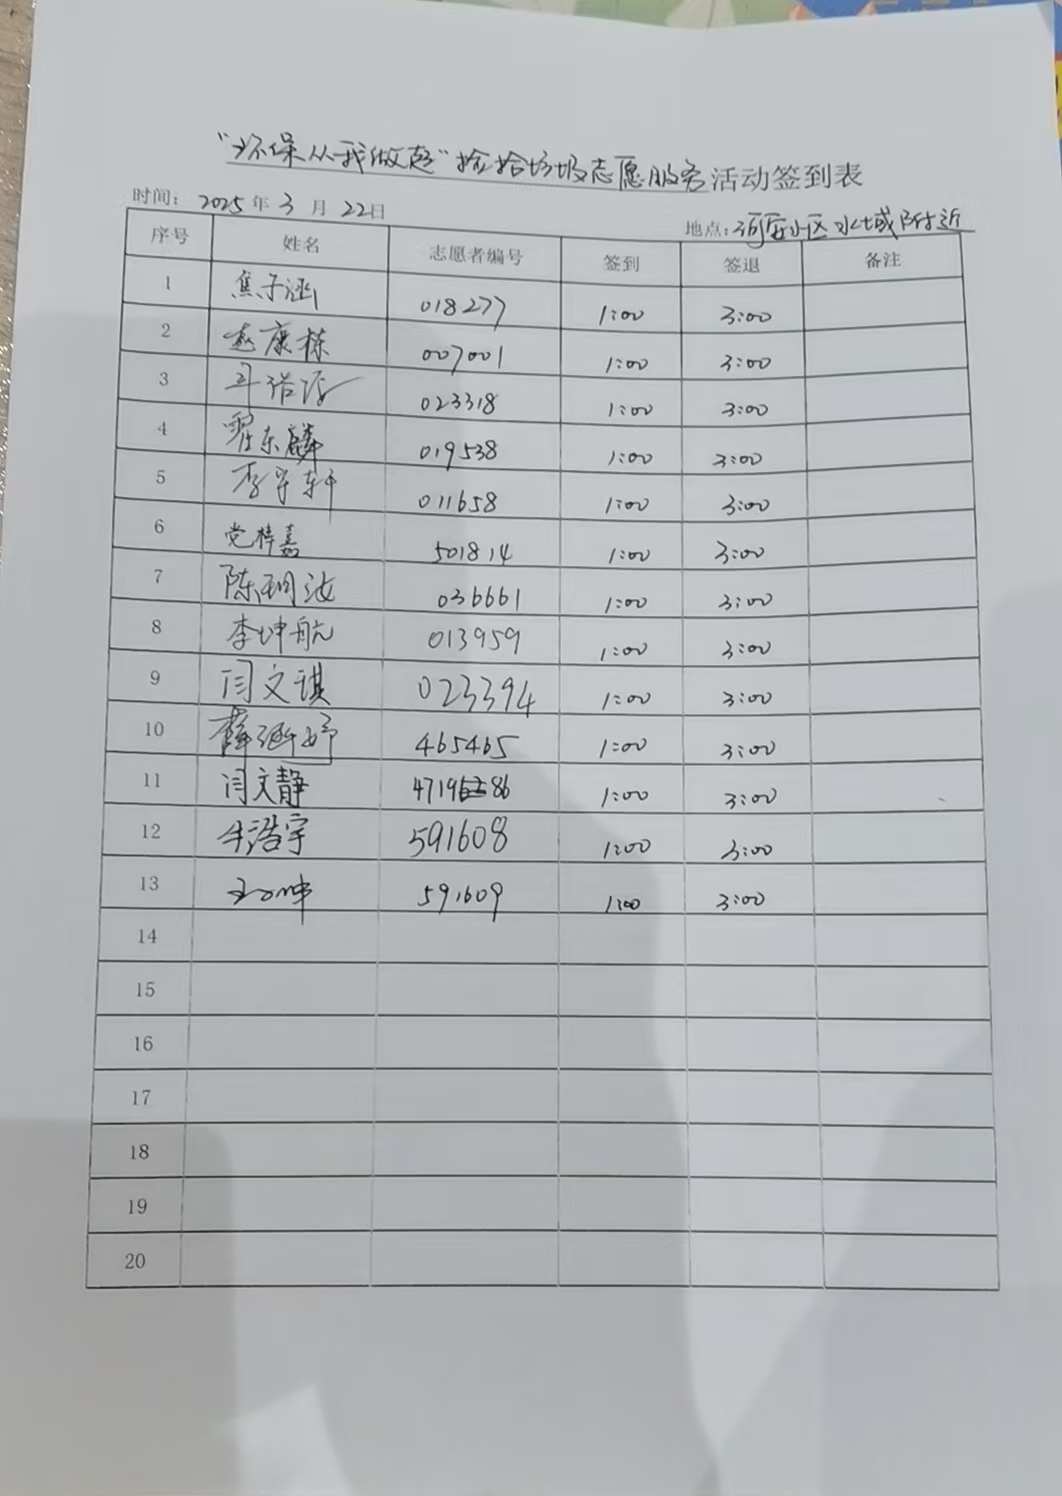 “环保从我做起”捡拾垃圾志愿服务活动签到表
时间：2025年3月22日
地点：河居小区水域附近
序号 姓名 志愿者编号 签到 签退 备注
1 焦子涵 018277 1:00 3:00
2 赵康栋 007001 1:00 3:00
3 023318 1:00 3:00
4 翟东麟 019538 1:00 3:00
5 李宇轩 011658 1:00 3:00
6 党梓嘉 501814 1:00 3:00
7 陈玥汝 036661 1:00 3:00
8 李坤航 013959 1:00 3:00
9 闫文琪 023394 1:00 3:00
10 薛涵婷 465465 1:00 3:00
11 闫文静 1:00 3:00
12 牛浩宇 591608 1:00 3:00
13 591609 1:00 3:00
14
15
16
17
18
19
20